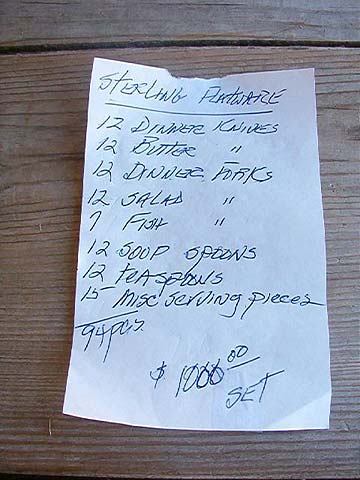 STERLING FLATWARE
12 DINNER KNIVES
12 BUTTER "
12 DINNER FORKS
12 SALAD "
7 FISH "
12 SOUP SPOONS
12 TEASPOONS
15 MISC SERVING PIECES
94 pcs.
$ 1000 00
SET